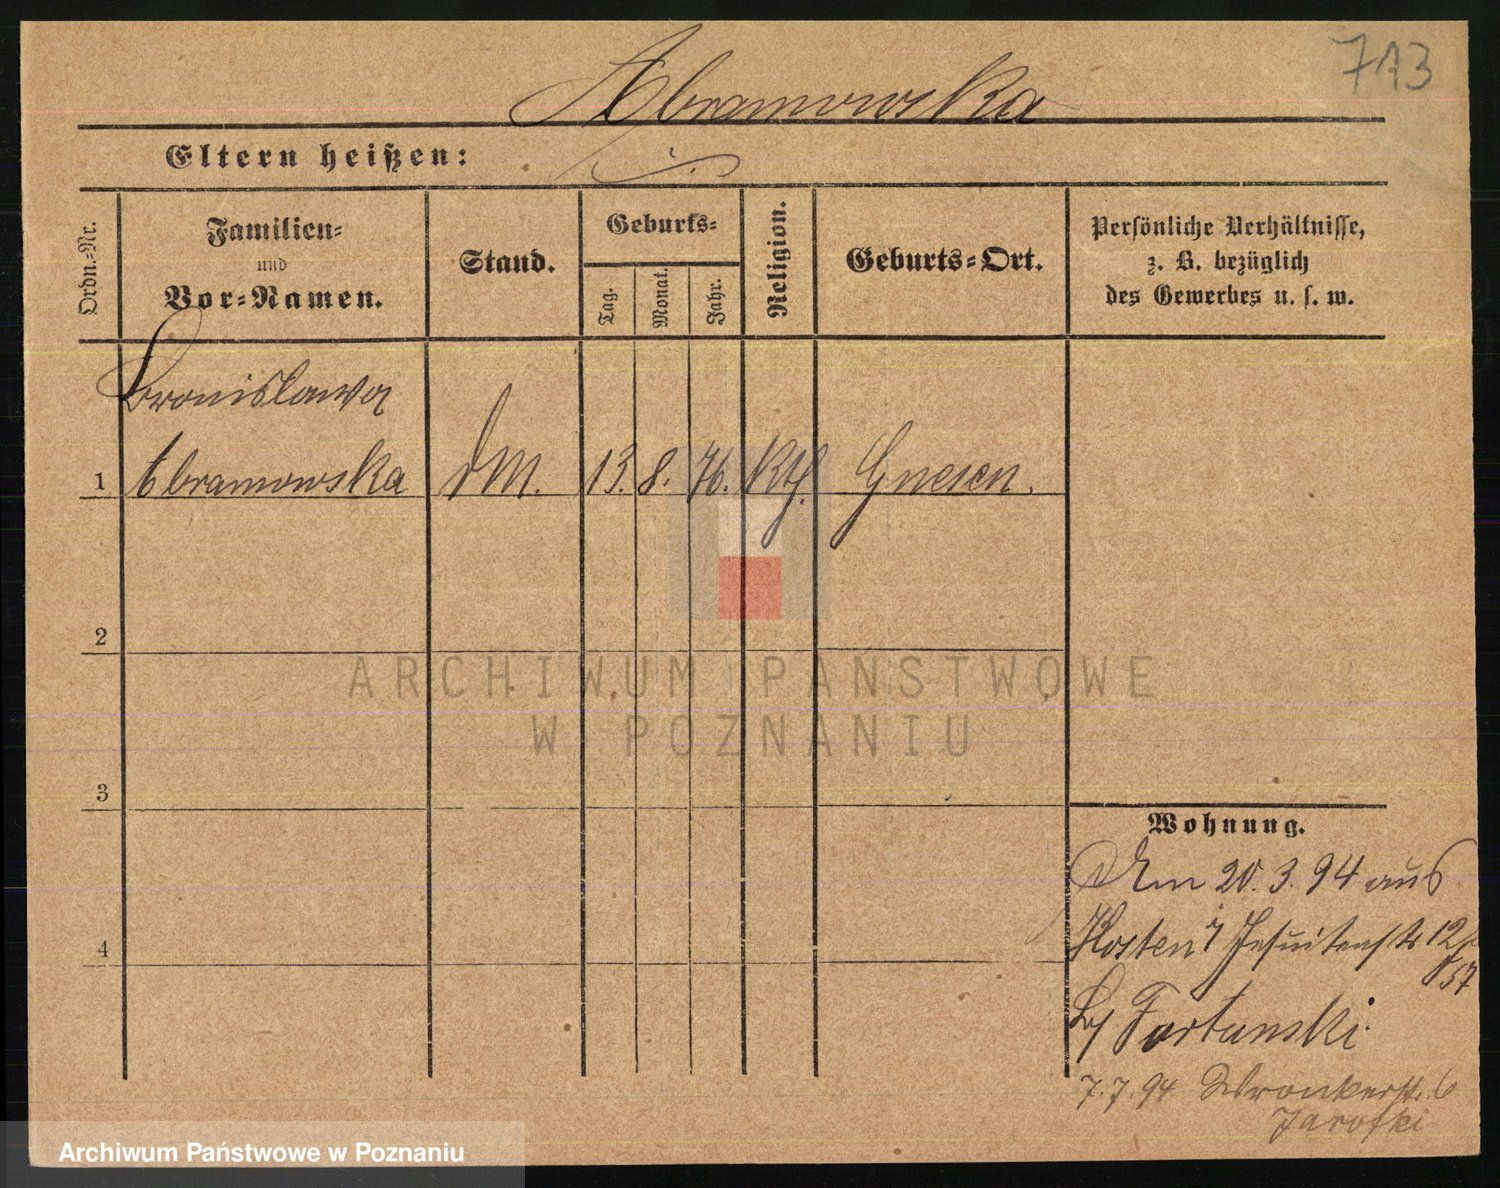 713
Abramowska
Eltern heißen:
Ordn.-Nr.
Familien-
und
Vor-Namen.
Stand.
Geburts-
Tag.
Monat.
Jahr.
Religion.
Geburts-Ort.
Persönliche Verhältnisse,
z. B. bezüglich
des Gewerbes u. s. w.
Bronislawa
1 Abramowska DM. 13. 8. 76. Kth. Gnesen.
2
3
4
ARCHIWUM PAŃSTWOWE
W POZNANIU
Wohnung.
Am 20.3.94 aus
Kosten Jesuitenstr 12
57
Fortanski
7.7.94 Wronkerstr. 6
Jarofki
Archiwum Państwowe w Poznaniu